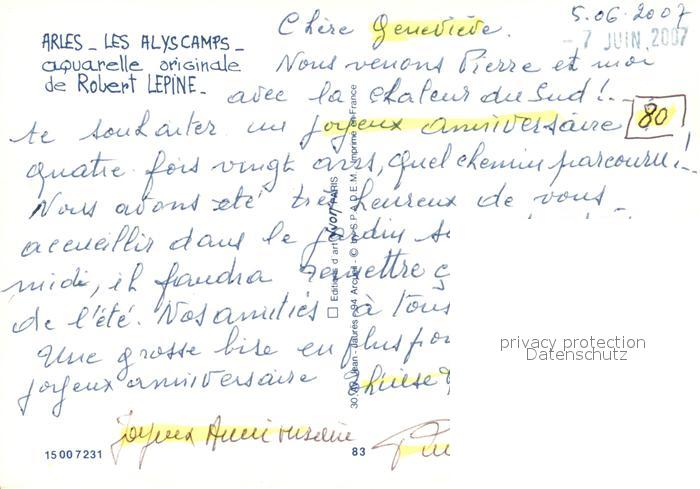 5.06.2007
- 7 JUIN, 2007
Chère Geneviève.
ARLES _ LES ALYSCAMPS _
aquarelle originale
de Robert LEPINE _
Nous venons Pierre et moi
avec la chaleur du Sud !..
te souhaiter un joyeux anniversaire 80
quatre fois vingt ans, quel chemin parcouru !..
Nous avons été très heureux de vous
accueillir dans le jardin
midi, il faudra remettre
de l'été. Nos amitiés à tous
Une grosse bise en plus
joyeux anniversaire
Joyeux Anniversaire
Editions d'art Yvon PARIS
30, Av. Jean-Jaurès - 94 Arcueil - © by S.P.A.D.E.M. Imprimé en France
15 00 7231
83
privacy protection
Datenschutz